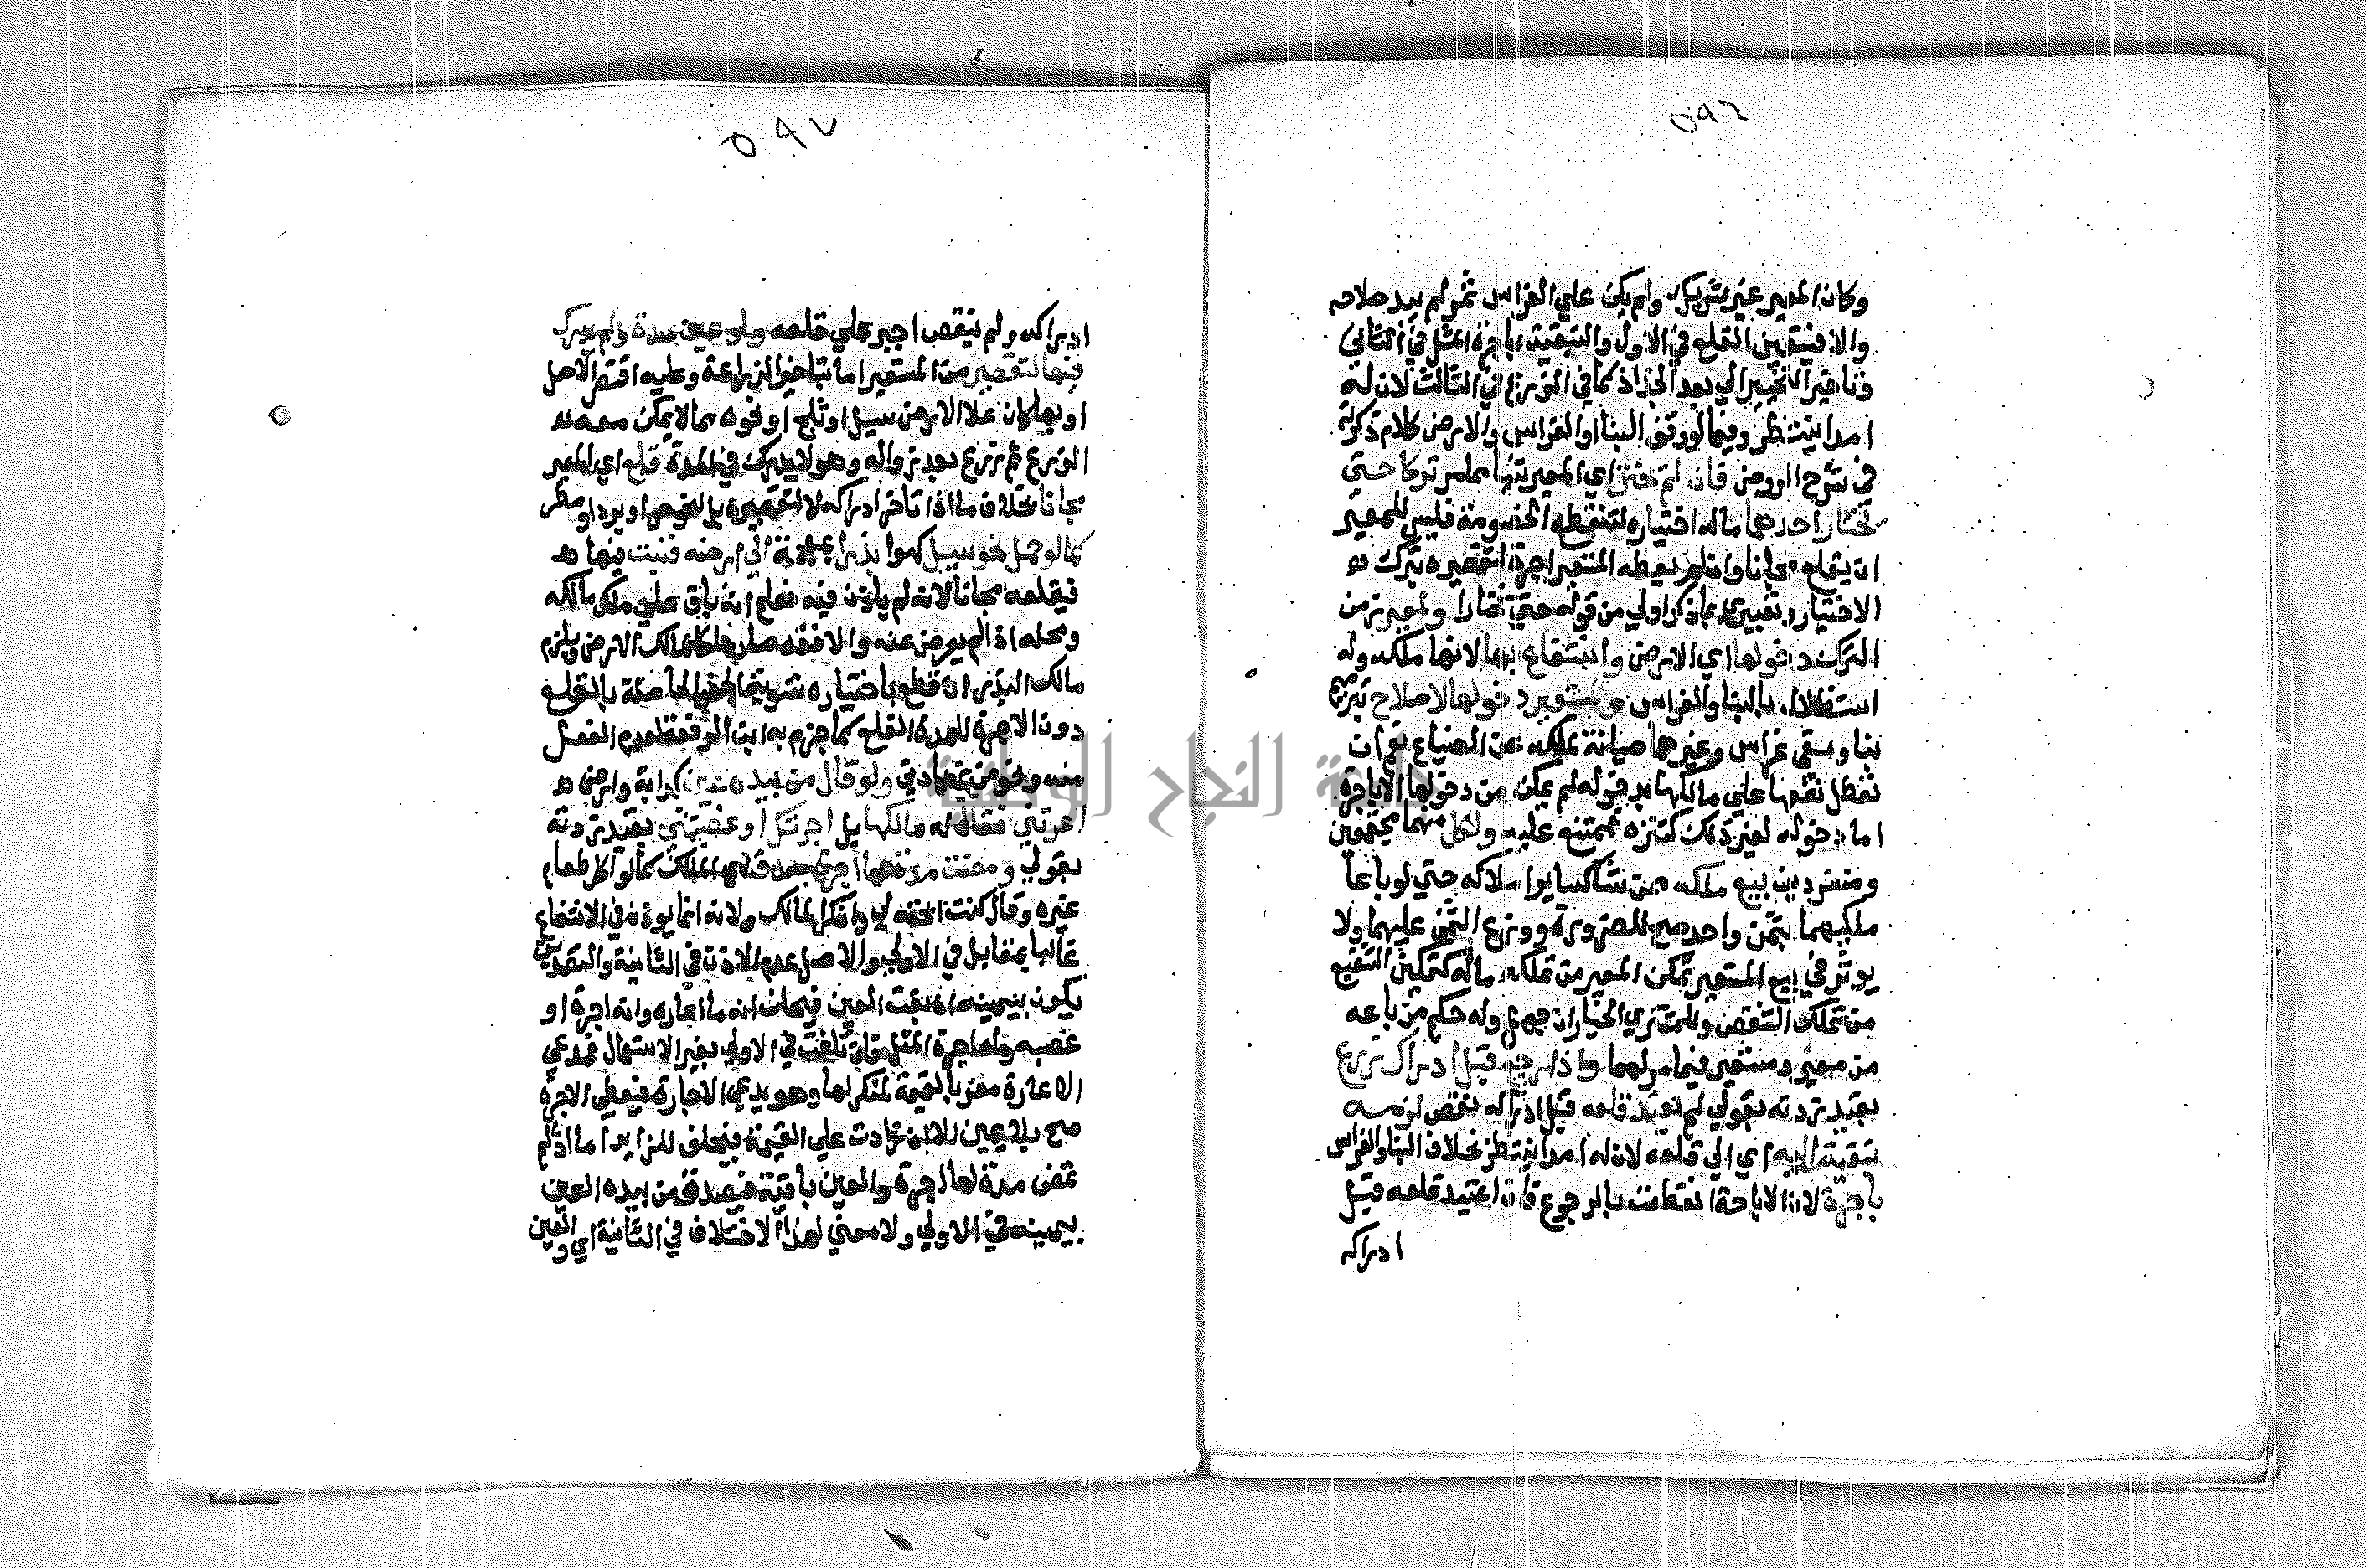 ٥٩٦
وكان المعير غير شريك ولم يكن علي الغراس ثمر لم يبد صلاحه
والا فيتعين القلع في الاول والتبقية باجرة المثل في الثاني
وتاخير التخيير الي بعد الجذاذ كما في الزرع في الثالث لان له
امدا ينتظر وفيما لو وقف البنا او الغراس والارض كلام ذكرته
في شرح الروض فان لم يختر اي المعير تركا حتي
يختار احدهما ماله اختياره لتنقطع الخصومة فليس للمعير
ان يقلع مجانا وان لم يعطه المستعير اجرة لتقصيره بترك
الاختيار وتعبيري بما ذكر اولي من قوله حتي يختارا ولمعير زمن
الترك دخولها اي الارض وانتفاع بها لانها ملكه وله
استظلال بالبنا والغراس ولمستعير دخولها لاصلاح بترميم
بنا وسقي غراس وغيرهما صيانة لملكه عن الضياع نعم ان
تعطل نفعها علي مالكها بدخوله لم يمكن من دخولها الا باجرة
اما دخوله لغير ذلك كتنزه فيمتنع عليه ولكل منهما مجتمعين
ومنفردين بيع ملكه ممن شا كساير املاكه حتي لو باعا
ملكيهما بثمن واحد صح للضرورة ووزع الثمن عليهما ولا
يوثر في بيع المستعير تمكن المعير من تملكه ماله كتمكن الشفيع
من تملك الشقص وللمشتري الخيار ان جهل وله حكم من باعه
من معير ومستعير فيما مر لهما واذا رجع قبل ادراك زرع
بقيد زدته بقولي لم يعتد قلعه قبل ادراكه نقص لزمه
تبقيته اليه اي الي قلعه لان له امدا ينتظر بخلاف البنا والغراس
باجرة لان الاباحة انقطعت بالرجوع فان اعتيد قلعه قبل
ادراكه
٥٩٧
ادراكه ولم ينقص اجبر علي قلعه ولو عين مدة ولم يدرك
فيها لتقصير من المستعير اما بتاخير الزراعة وعليه اقتصر الاصل
او بها كان علا الارض سيل او ثلج او نحوه مما لا يمكن معه
الزرع ثم زرع بعد زواله وهو لا يدرك في المدة قلع اي المعير
مجانا بخلاف ما اذا تاخر ادراكه لا لتقصيره بل لنحو حر او برد او مطر
كما لو حمل نحو سيل كهوا بذرا الي ارضه فنبت فيها
فيقلعه مجانا لانه لم ياذن فيه فعلم انه باق علي ملك مالكه
ومحله اذا لم يعرض عنه والا فقد صار ملكا لمالك الارض ويلزم
مالك البذر ان قلع باختياره تسوية الحفر الحاصلة بالقلع
دون الاجرة للمدة القلع كما جزم به ابن الرفعة لعدم الفعل
منه ونحو من زيادتي ولو قال من بيده عين كدابة وارض
اعرتني فقال له مالكها بل اجرتك او غصبتني بقيد زدته
بقولي ومضت مدة لها اجرة صدق المالك كما لو اكل طعام
غيره وقال كنت ابحته لي وانكر المالك ولانه انما يوذن في الانتفاع
غالبا بمقابل في الاولي والاصل عدم الاذن في الثانية والتصديق
يكون بيمينه ان بقيت العين فيحلف انه ما اعاره وانه اجره او
غصبه وله اجرة المثل فان تلفت في الاولي بغير الاستعمال فمدعي
الاعارة مقر بالقيمة لمنكر لها وهو يدعي الاجارة فيعطي الاجرة
صح بلا يمين الا ان زادت علي القيمة فيحلف للزايد اما اذا لم
تمض مدة لها اجرة والعين باقية فيصدق من بيده العين
بيمينه في الاولي ولا معني لهذا الاختلاف في الثانية اي والعين
جامعة النجاح الوطنية